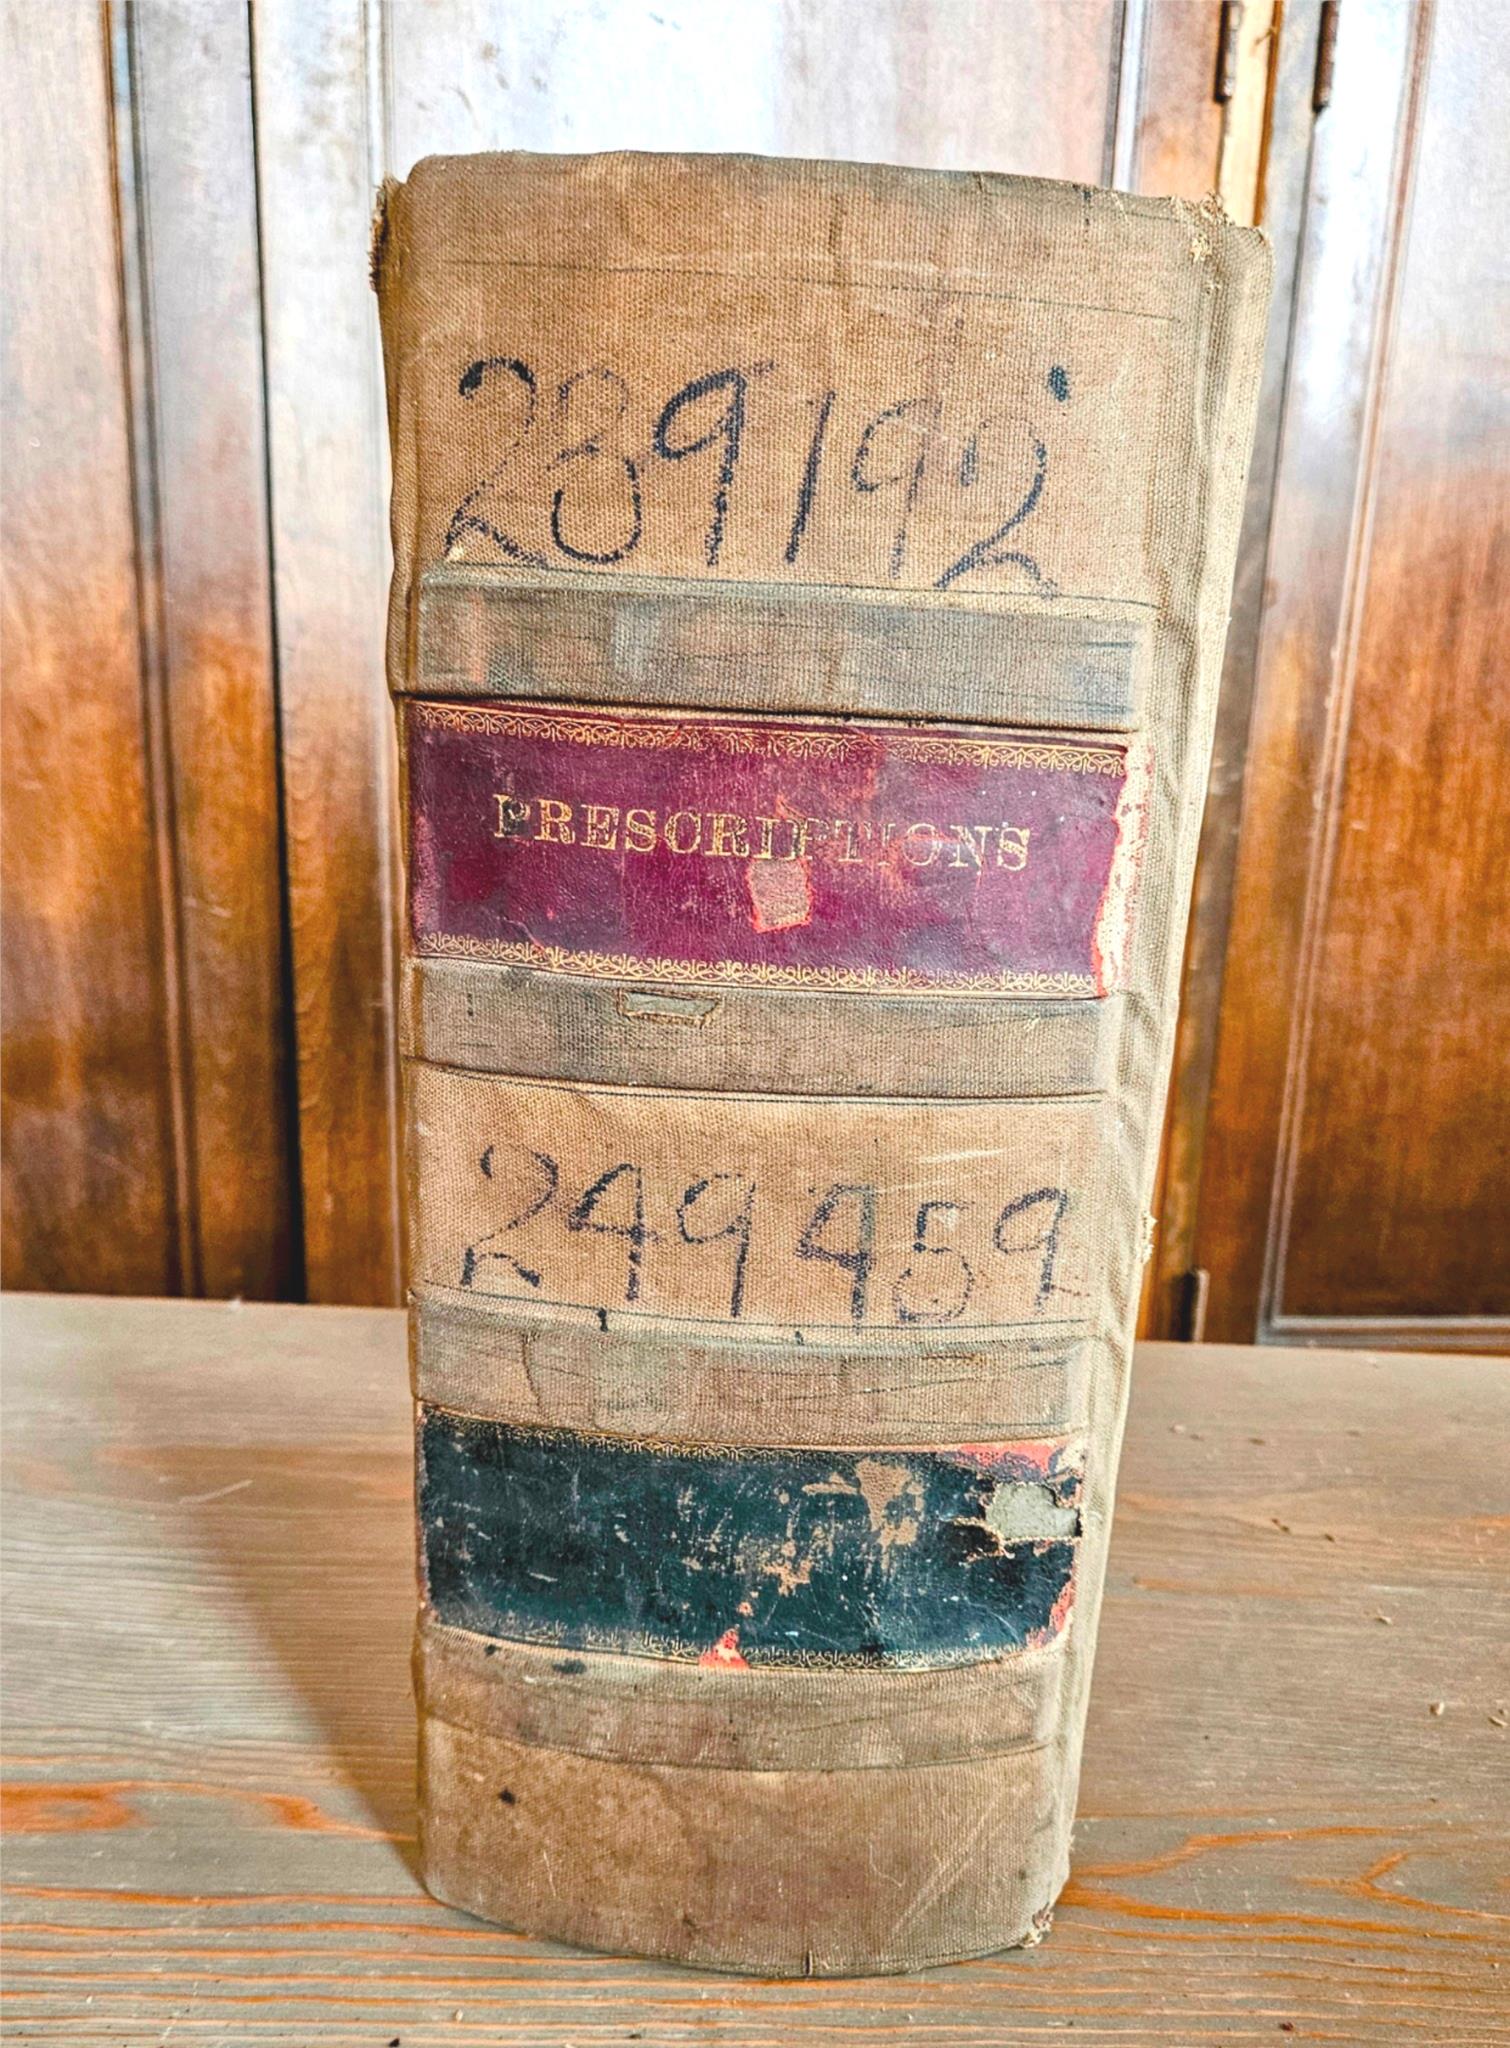 289192
PRESCRIPTIONS
299959